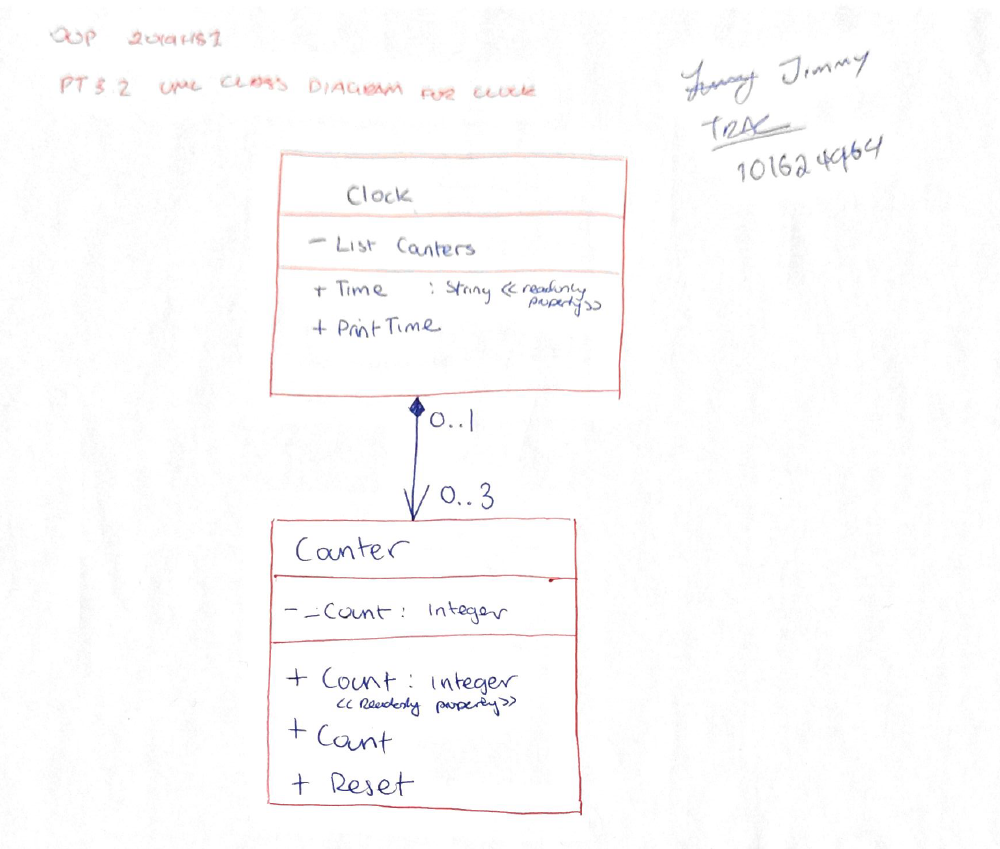 OOP 2019HS1
PT 3.2 UML CLASS DIAGRAM FOR CLOCK
Jimmy
TRAC
101624964
Clock
- List Counters
+ Time : String << readonly
property>>
+ Print Time
0..1
0..3
Counter
- _Count : Integer
+ Count : integer
<< Readonly property>>
+ Count
+ Reset